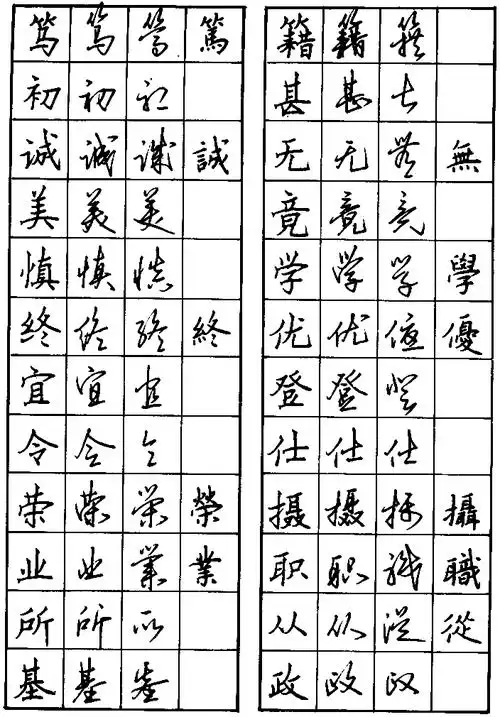 笃 笃 笃 篤
初 初 初
诚 诚 诚 誠
美 美 美
慎 慎 慎
终 终 终 終
宜 宜 宜
令 令 令
荣 荣 荣 榮
业 业 業 業
所 所 所
基 基 基
籍 籍 籍
甚 甚 甚
无 无 無 無
竟 竟 竟
学 学 学 學
优 优 優 優
登 登 登
仕 仕 仕
摄 摄 摄 攝
职 职 職 職
从 从 從 從
政 政 政